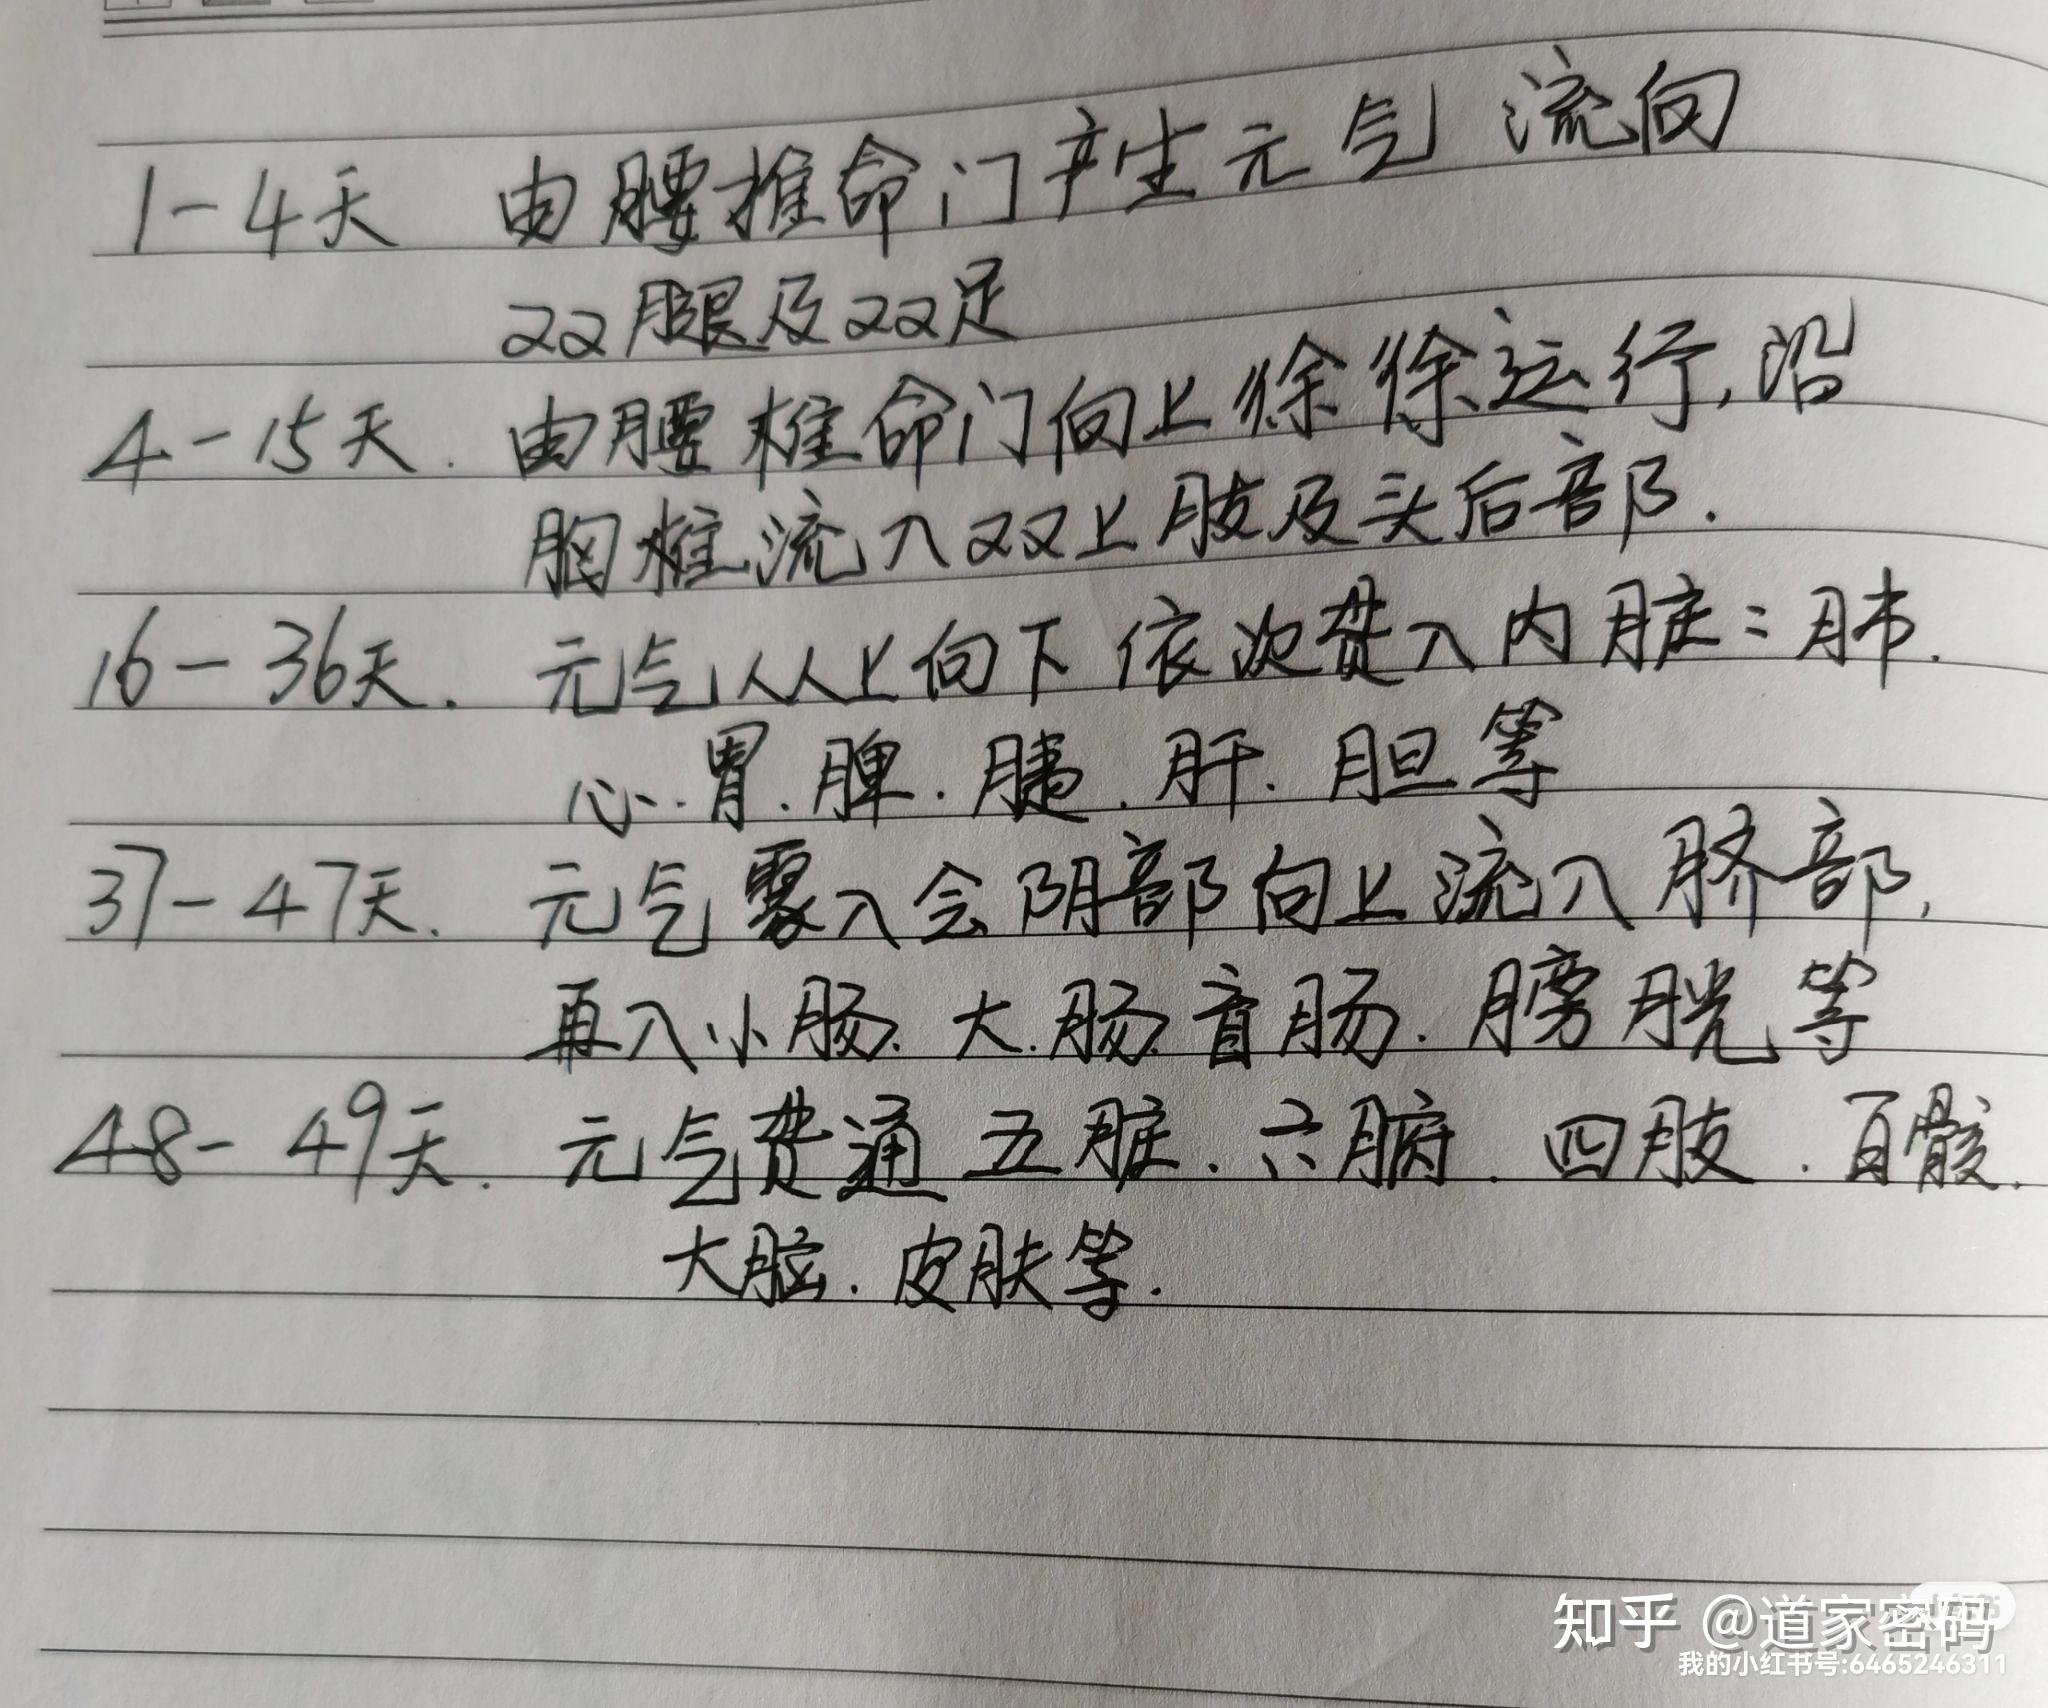 1-4天 由腰推命门产生元气 流向
双腿及双足
4-15天. 由腰椎命门向上徐徐运行,沿
胸椎流入双上肢及头后部.
16-36天. 元气从上向下依次贯入内脏:肺.
心.胃.脾.胰.肝.胆等
37-47天. 元气 入会阴部向上流入脐部,
再入小肠.大肠.盲肠.膀胱等
48-49天. 元气贯通五脏.六腑.四肢.百骸.
大脑.皮肤等.
知乎 @道家密码
我的小红书号:6465246311